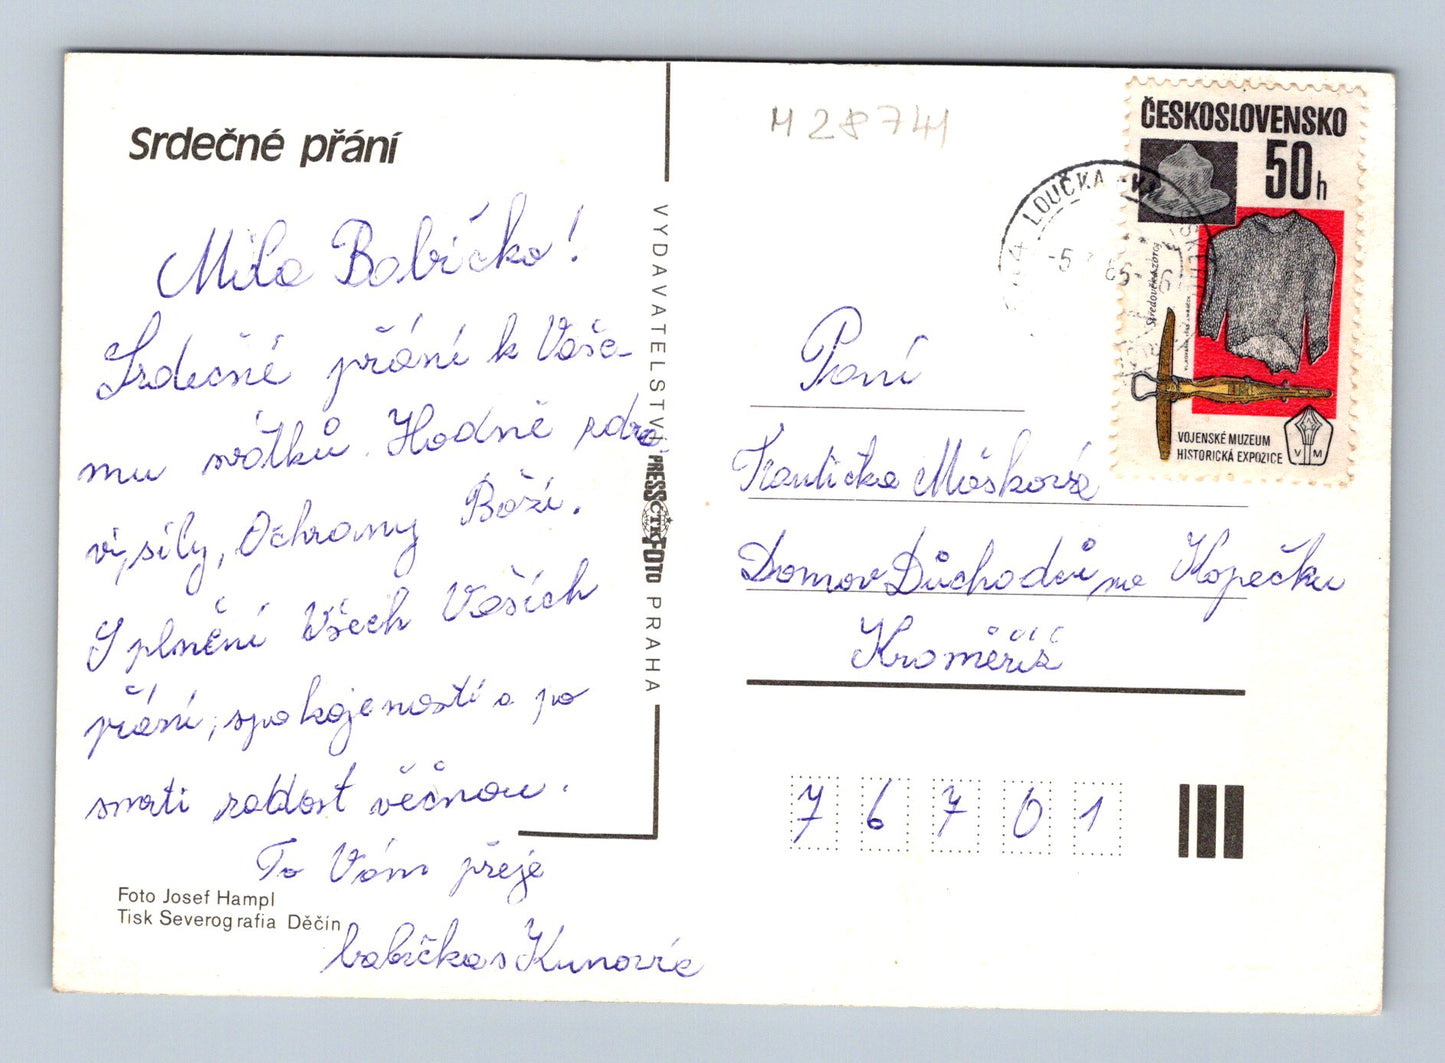 Srdečné přání
Milá Babičko!
Srdečné přání k Vaše-
mu svátku. Hodně zdra
ví, síly, Ochrany Boží.
S plnění Všech Vašich
přání, spokojenosti a po
smrti radost věčnou.
To Vám přeje
babička s Kunovic
Foto Josef Hampl
Tisk Severografia Děčín
VYDAVATELSTVÍ PRESSFOTO PRAHA
ČTK
M 28741
ČESKOSLOVENSKO
50h
Středověká zbroj
VOJENSKÉ MUZEUM
HISTORICKÁ EXPOZICE
V M
LOUČKA
-5. 86-16
Paní
Františka Máškova
Domov Důchodců na Kopečku
Kroměříž
76701